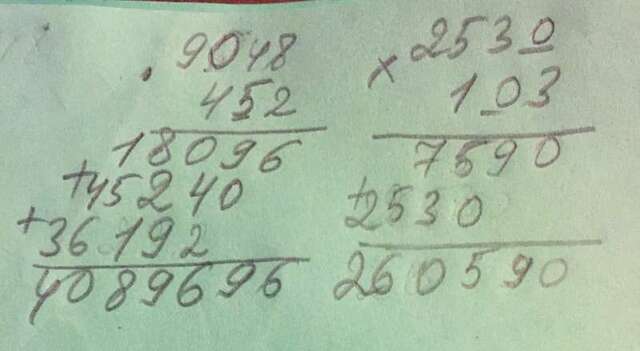 9048
452
18096
+45240
+36192
4089696
× 2530
103
7590
+2530
260590